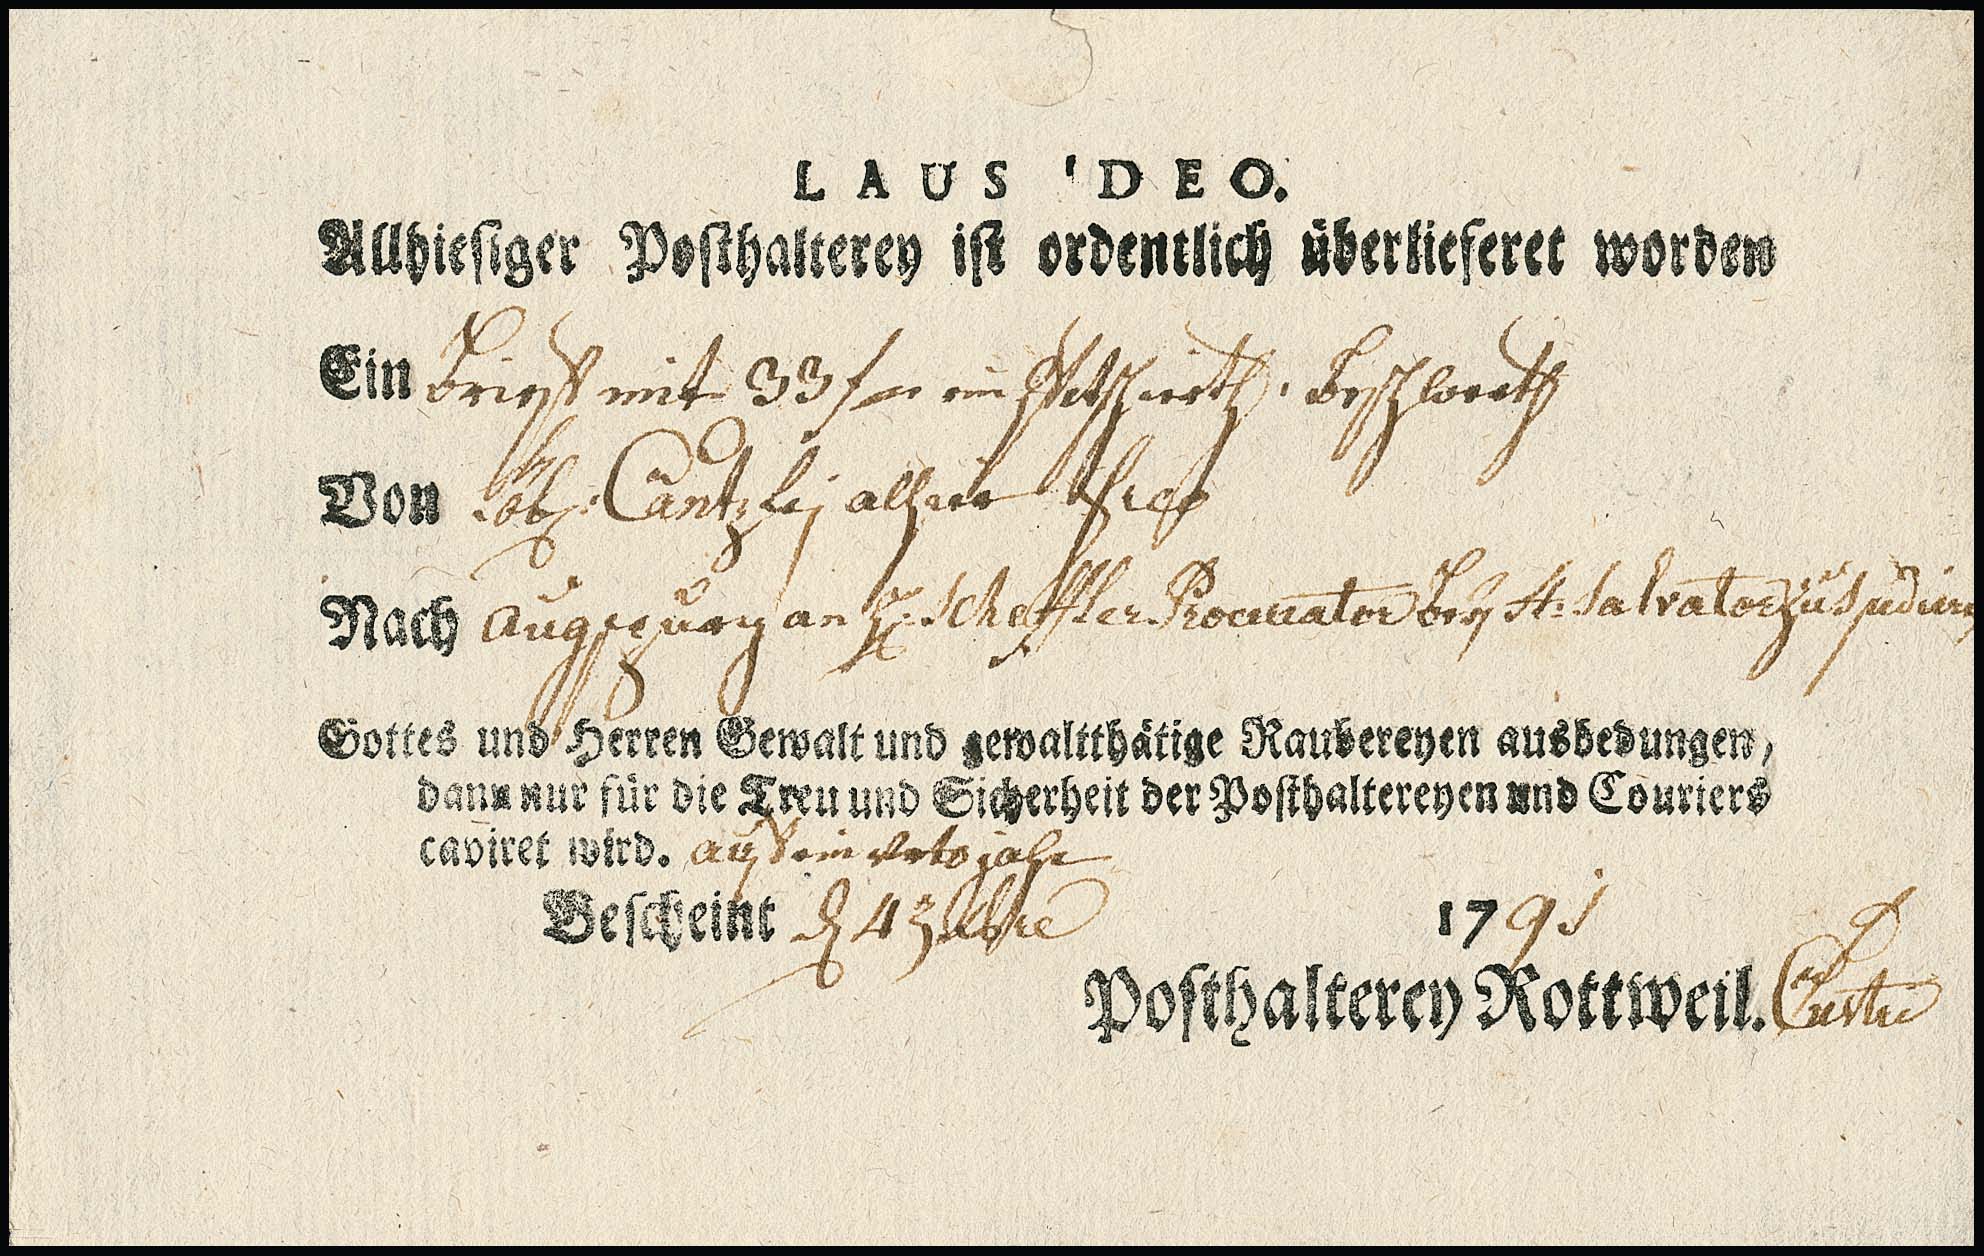 LAUS DEO.
Allhiesiger Posthalterey ist ordentlich überlieferet worden
Ein Brieff mit 33 f
Von Löbl. Cantzlej alhier
Nach Augspurg an H: Scheffler Procurator bey St: Salvator zu
Gottes und Herren Gewalt und gewaltthätige Raubereyen ausbedungen,
dann nur für die Treu und Sicherheit der Posthaltereyen und Couriers
caviret wird. auff ein
Bescheint d 4
1791
Posthalterey Rottweil.